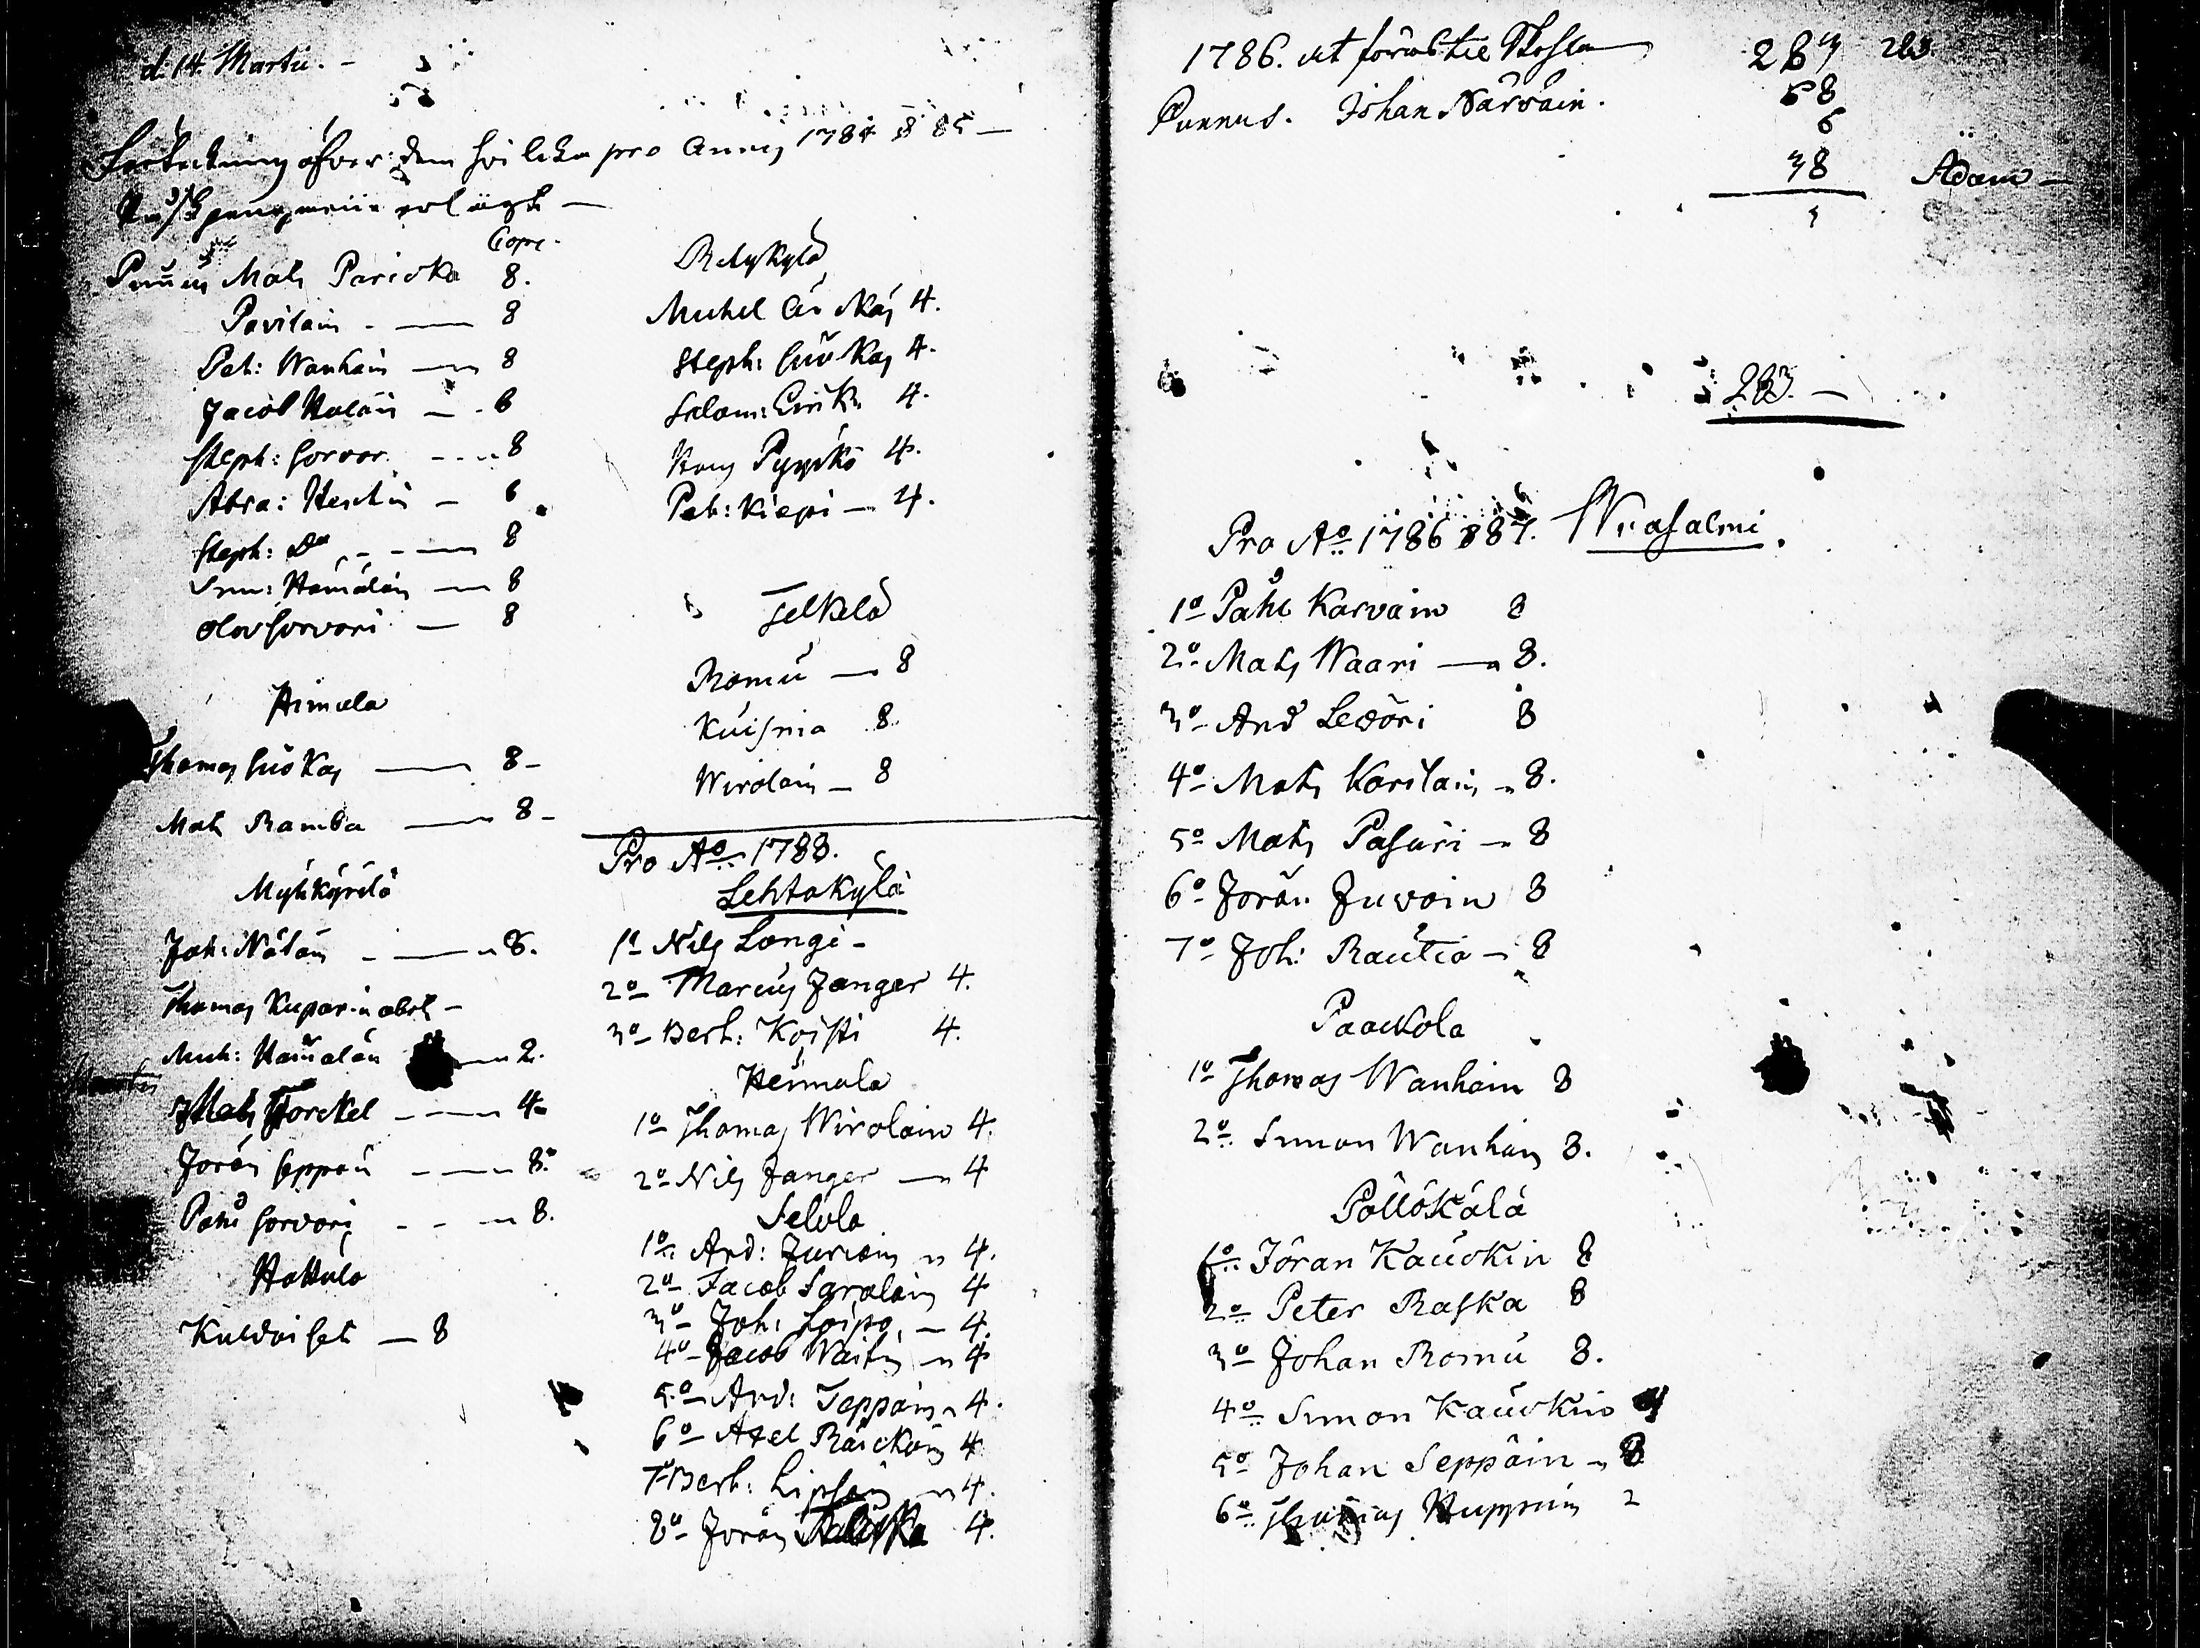 d. 14. Martii. -
Förteckning öfver dem hvilcka pro Annis 1784 & 85 —
erlagt —
Copc.
Mats Parickka 8.
Pavilain - — 8
Pet: Wanhain — 8
Jacob — 6
Steph: Sorvar - - - 8
Abra: — 6
Steph: Do - - — 8
Sim: Hämäläin — 8
Olov Sorvari — 8
Himala
Thomas Suokas — 8 -
Mats Ramba — 8 -
Myhkyrilä
Joh: Nätäin - — 8.
Thomas Kuparin
Mich: Hämäläin — 2.
Mats Torckel - — 4 -
Jöran Seppäin - — 8.
Påhl Sorvari - - — 8.
Hattula
Kuldaiset — 8
Retykylä
Michel 4.
Steph: Suokas 4.
Salom: 4.
Pyyckö 4.
Pet: Kiepi — 4.
Telkelä
Romu — 8
Kuisma 8.
Wirolain — 8
Pro Ao 1788.
Lehtokylä
1o Nils Longi -
2o Marcus Janger 4.
3o Bert: Koisti 4.
Heimala
1o Thomas Wirolain 4.
2o Nils Janger — 4
Selola
1o And: Jurvain 4.
2o Jacob Sarolain 4
3o Joh: Loipo, — 4.
4o Jacob Waitin 4
5o And: Teppain 4.
6o Axel Räickön 4
7o Bert: Lipsain 4.
8o Jöran 4.
1786. at
Punnus. Johan Närväin.
267 263.
68
6
38 Adam —
263. —
Pro Ao 1786 & 87. Wuosalmi.
1o Påhl Karvain 8
2o Mats Waari — 8.
3o And Levöri 8
4o Mats Karilain 8.
5o Mats Pasuri — 8
6o Jöran Juvain 8
7o Joh: Rautia — 8
Paackola
1o Thomas Wanhain 8
2o Simon Wanhain 8.
Pöllökälä
1o Jöran Kauckin 8
2o Peter Raska 8
3o Johan Romu 8.
4o Simon Kauckin 4
5o Johan Seppäin 8
6o Thomas Huppoin 2